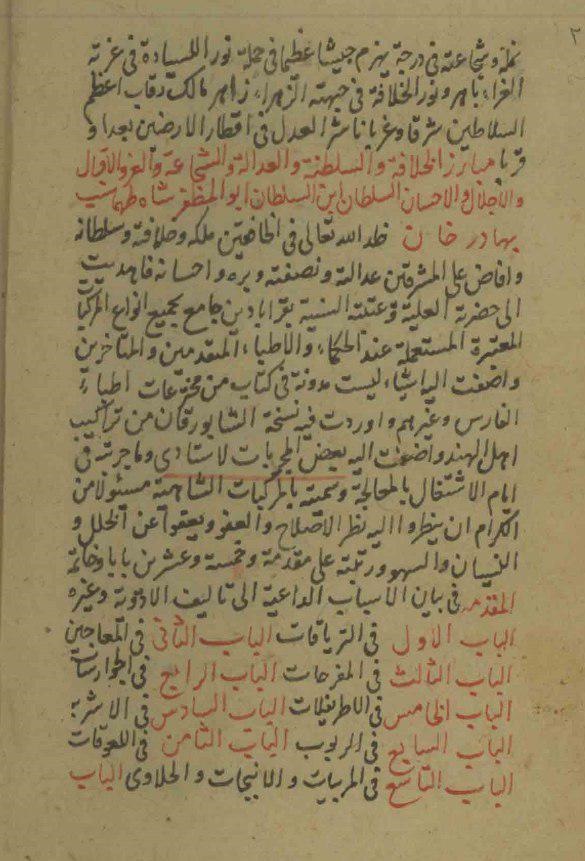 ٢
نملة وشجاعته في درجة يهزم جيشا عظيما في حملة نور السيادة في غرته
الغراء باهر ونور الخلافة في جبهته الزهراء زاهر مالك رقاب اعظم
السلاطين شرقا وغربا ناشر العدل في اقطار الارضين بعدا و
قربا مبارز الخلافة والسلطنة والعدالة والشجاعة والعز والاقبال
والاجلال والاحسان السلطان ابن السلطان ابو المظفر شاه طهماسب
بهادر خان خلد الله تعالى في الخافقين ملكه وخلافته وسلطانه
وافاض على المشرقين عدالته ونصفته وبره واحسانه فاهديت
الى حضرته العلية وعتبته السنية بقرابادين جامع بجميع انواع المركبات
المعتبرة المستعملة عند الحكماء والاطباء المتقدمين والمتاخرين
واضفت اليه اشياء ليست مدونة في كتاب من مخترعات اطباء
الفارس وغيرهم واوردت فيه نسخة الشابورقان من تراكيب
اهل الهند واضفت اليه بعض المجربات لاستادي وما جربته في
ايام الاشتغال بالمعالجة وسميته بالمركبات الشاهية مسئولا من
الكرام ان ينظروا اليه نظر الاصلاح والعفو ويعفوا عن الخلل و
النسيان والسهو ورتبته على مقدمة وخمسة وعشرين بابا وخاتمة
المقدمه في بيان الاسباب الداعية الى تاليف الادوية وغيره
الباب الاول في الترياقات الباب الثاني في المعاجين
الباب الثالث في المفرحات الباب الرابع في الجوارشات
الباب الخامس في الاطريفلات الباب السادس في الاشربه
الباب السابع في الربوب الباب الثامن في اللعوقات
الباب التاسع في المربيات والانبجات والحلاوى الباب